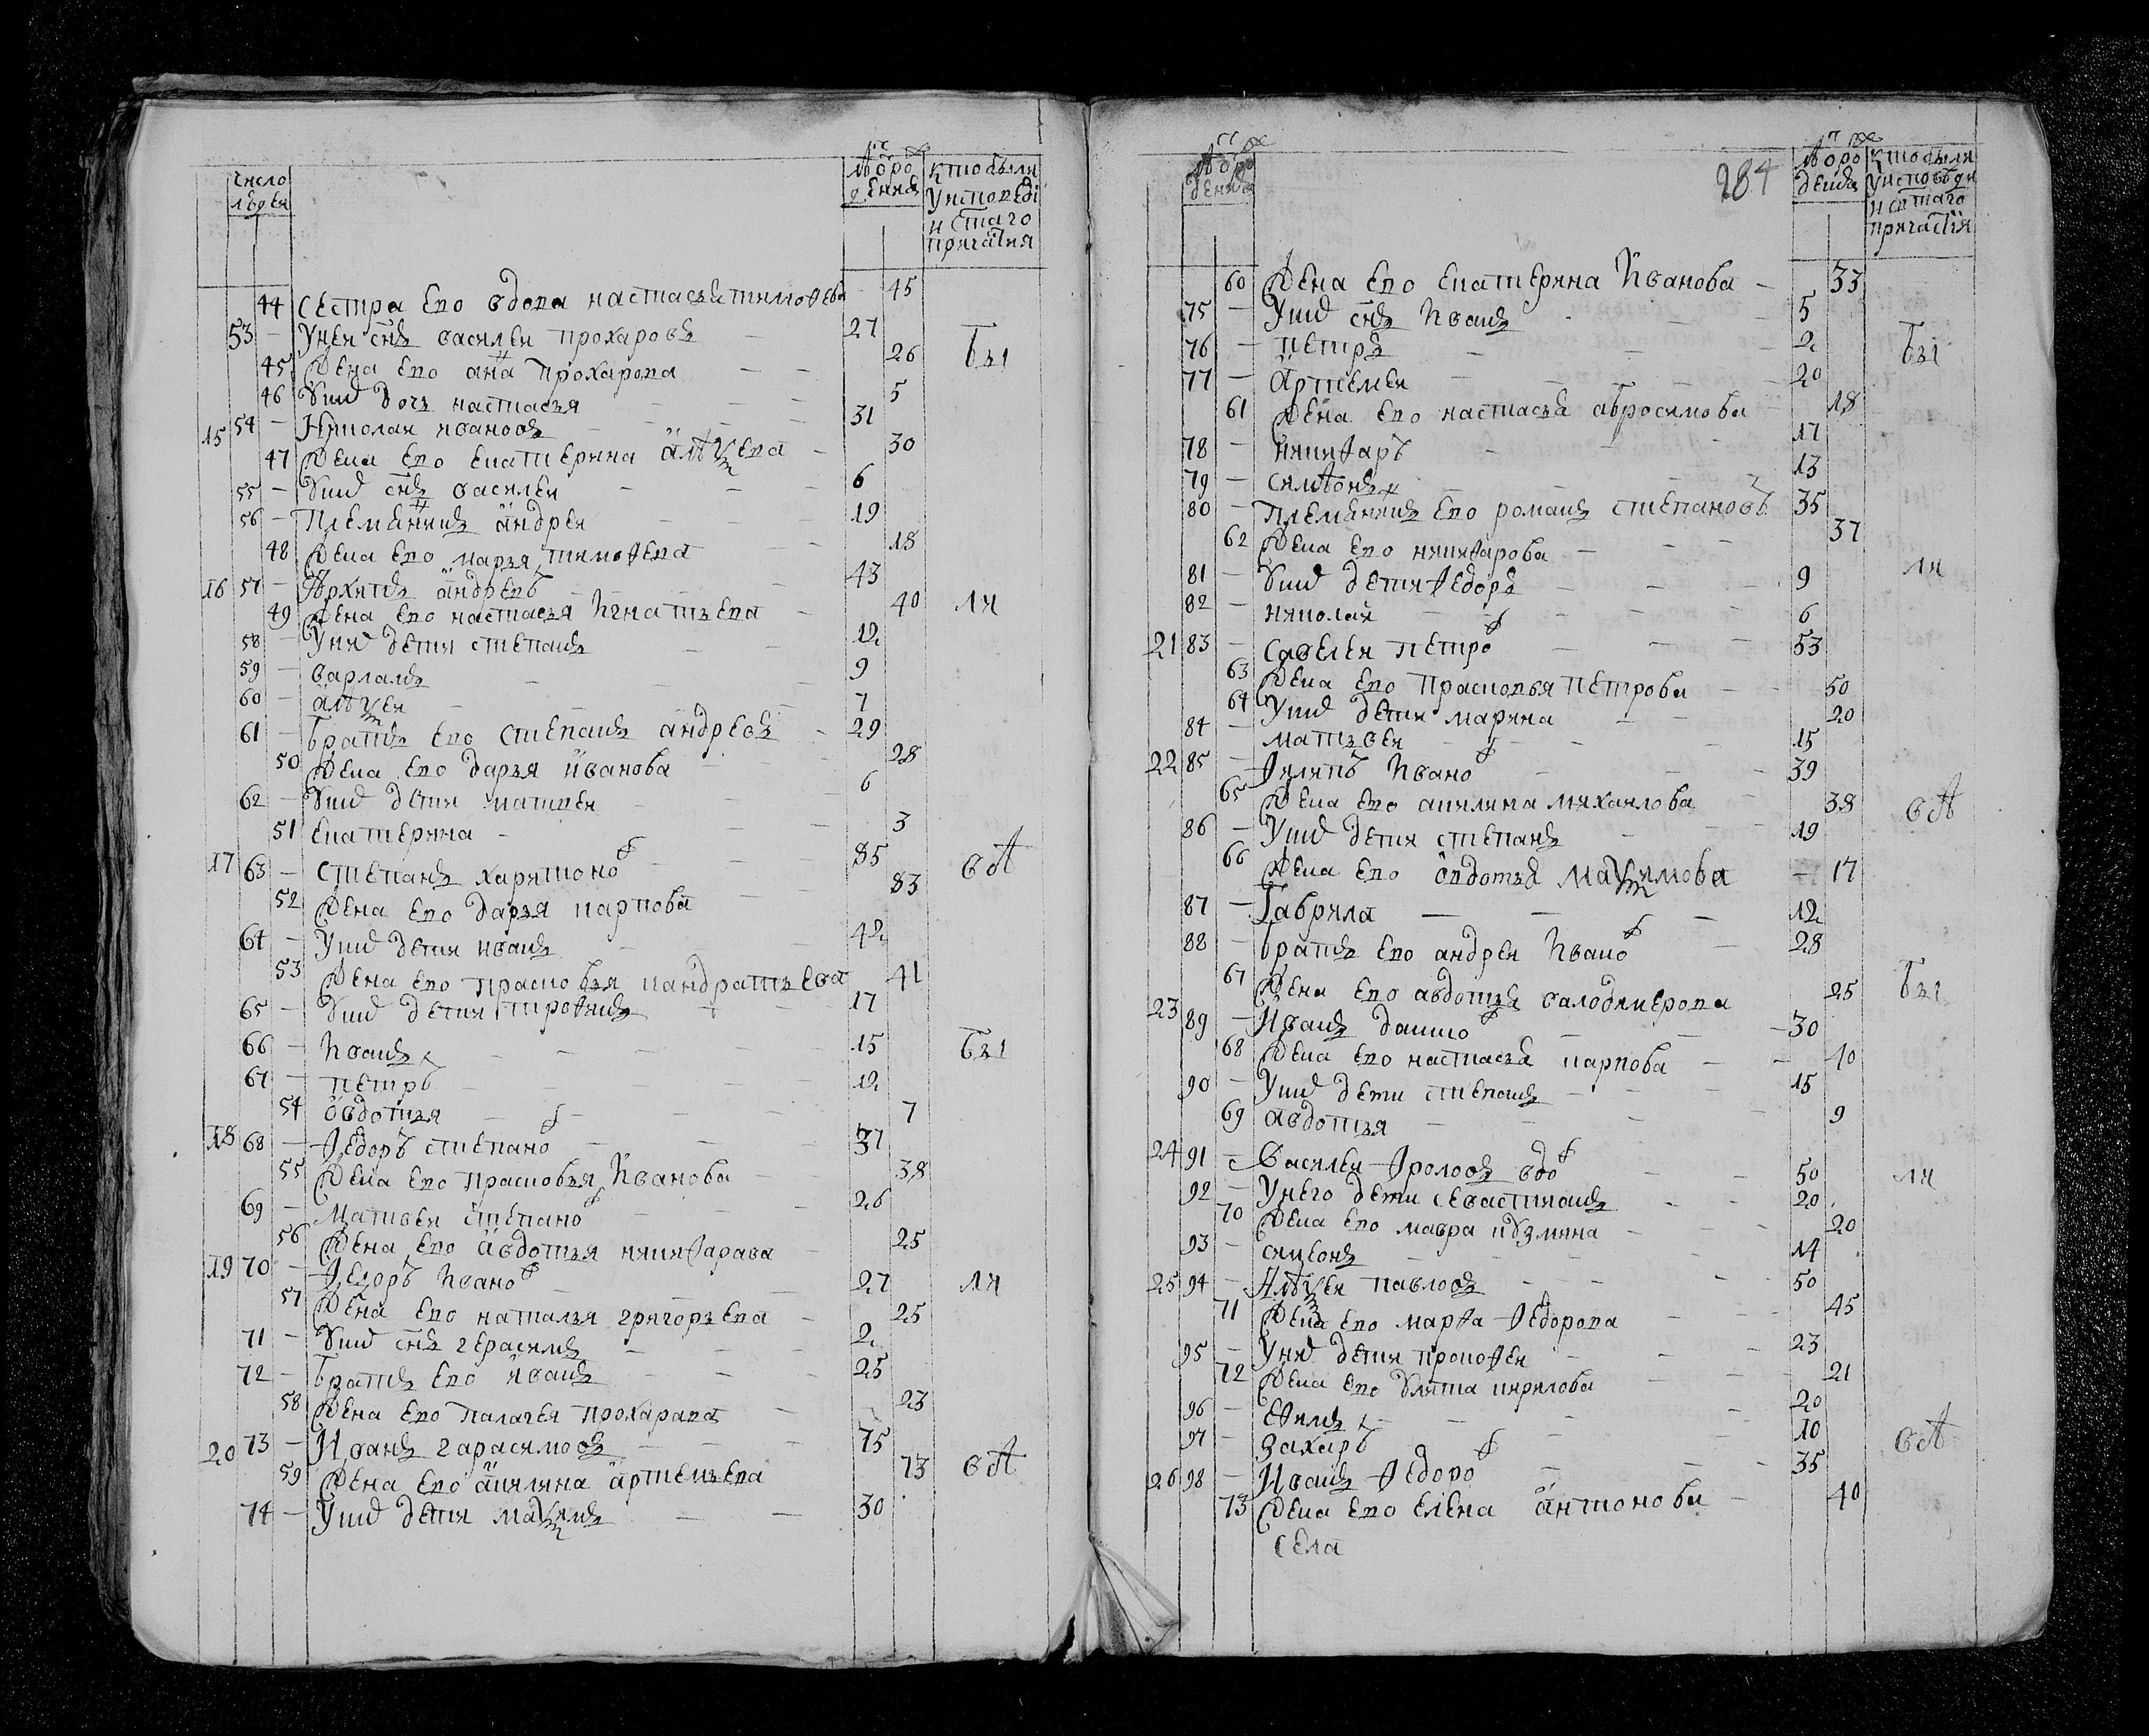 число
людей
лѣ ро
дения
кто были
у исповеди
и стаго
причастия
44 сестра ево вдова настасья тимофева 45
53 — У неи снъ василеи прохаровъ — 27
45 Жена ево анна прохарова — — 26
46 У них дочь настасья — — — 5
15 54 — Николаи ивановъ — — — 31
47 Жена ево екатерина алѯѣева — 30
55 — У них снъ василеи — — — 6
56 — Племянникъ андреи — — 19
48 Жена ево марья тимофева — — 18
16 57 — Архипъ андреевъ — — — 43
49 Жена ево настасья игнатьева — 40
58 — У них дети степанъ — — 12
59 — варламъ — — — 9
60 — алѯѣи — — — — 7
61 — братъ ево степанъ андреевъ — 29
50 Жена ево дарья иванова — — 28
62 — У них дети матвеи — — 6
51 екатерина — — — 3
17 63 — степанъ харитоновъ — — 85
52 Жена ево дарья карпова — 83
64 — У них дети иванъ — — 42
53 Жена ево прасковья кандратьева 41
65 — У них дети трофимъ — — 17
66 — иванъ — — — — 15
67 — петръ — — — — 12
54 овдотья — — — — 7
18 68 — Федоръ степановъ — — — 37
55 Жена ево прасковья иванова — 38
69 — Матвеи степановъ — — 26
56 Жена ево авдотья никифарава 25
19 70 — Федоръ ивановъ — — — 27
57 Жена ево наталья григорьева — 25
71 — У них снъ герасимъ — — — 2
72 — братъ ево иванъ — — — 25
58 Жена ево палагея прохарава — 23
20 73 — Иванъ гарасимовъ — — — 75
59 Жена ево акилина артемьева 73
74 — У них дети маѯимъ — — 30
бы
ли
во
бы
ли
во
лѣ ро
дения
284
лѣ ро
дения
кто были
у исповѣди
и стаго
причастия
60 Жена ево екатерина иванова — 33
75 — У них снъ иванъ — — — 5
76 — петръ — — — — 2
77 — артемеи — — — — 20
61 Жена ево настасья абросимова — 18
78 — никифаръ — — — 17
79 — сямионъ — — — 13
80 — племянникъ ево романъ степановъ 35
62 Жена ево никифарова — — — 37
81 — У них дети федоръ — — — 9
82 — николаи — — — — 6
21 83 — савелеи петровъ — — — 53
63 Жена ево прасковья петрова — — 50
64 У них дети марина — — 20
84 — матьвеи — — — 15
22 85 — Филипъ ивановъ — — — 39
65 Жена ево акилина михаилова — 38
86 — У них дети степанъ — — 19
66 Жена ево овдотья маѯимова — 17
87 — Гаврила — — — 12
88 — братъ ево андреи ивановъ — 28
67 Жена ево авдотья валодимерова 25
23 89 — Иванъ даниловъ — — — 30
68 Жена ево настасья карпова — — 40
90 — У них дети степанъ — — — 15
69 авдотья — — — — 9
24 91 — Василеи фроловъ вдовъ — — 50
92 — У него дети севастиянъ — — 20
70 Жена ево мавра кузмина — 20
93 — симеонъ — — — — 14
25 94 — Алѯѣи павловъ — — — 50
71 Жена ево марфа федорова — — 45
95 — У них дети прокофеи — — — 23
72 Жена ево улита кирилова — — 21
96 — ефимъ — — — — 20
97 — захаръ — — — — 10
26 98 — Иванъ федоровъ — — — 35
73 Жена ево елена антонова — 40
села
бы
ли
во
бы
ли
во